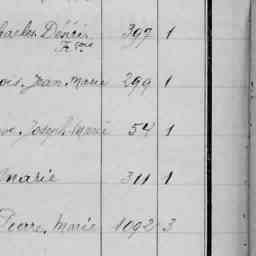 Charles Désiré 397 1
Fçois
Jean Marie 299 1
Joseph Marie 54 1
Marie 311 1
Pierre Marie 1092 3